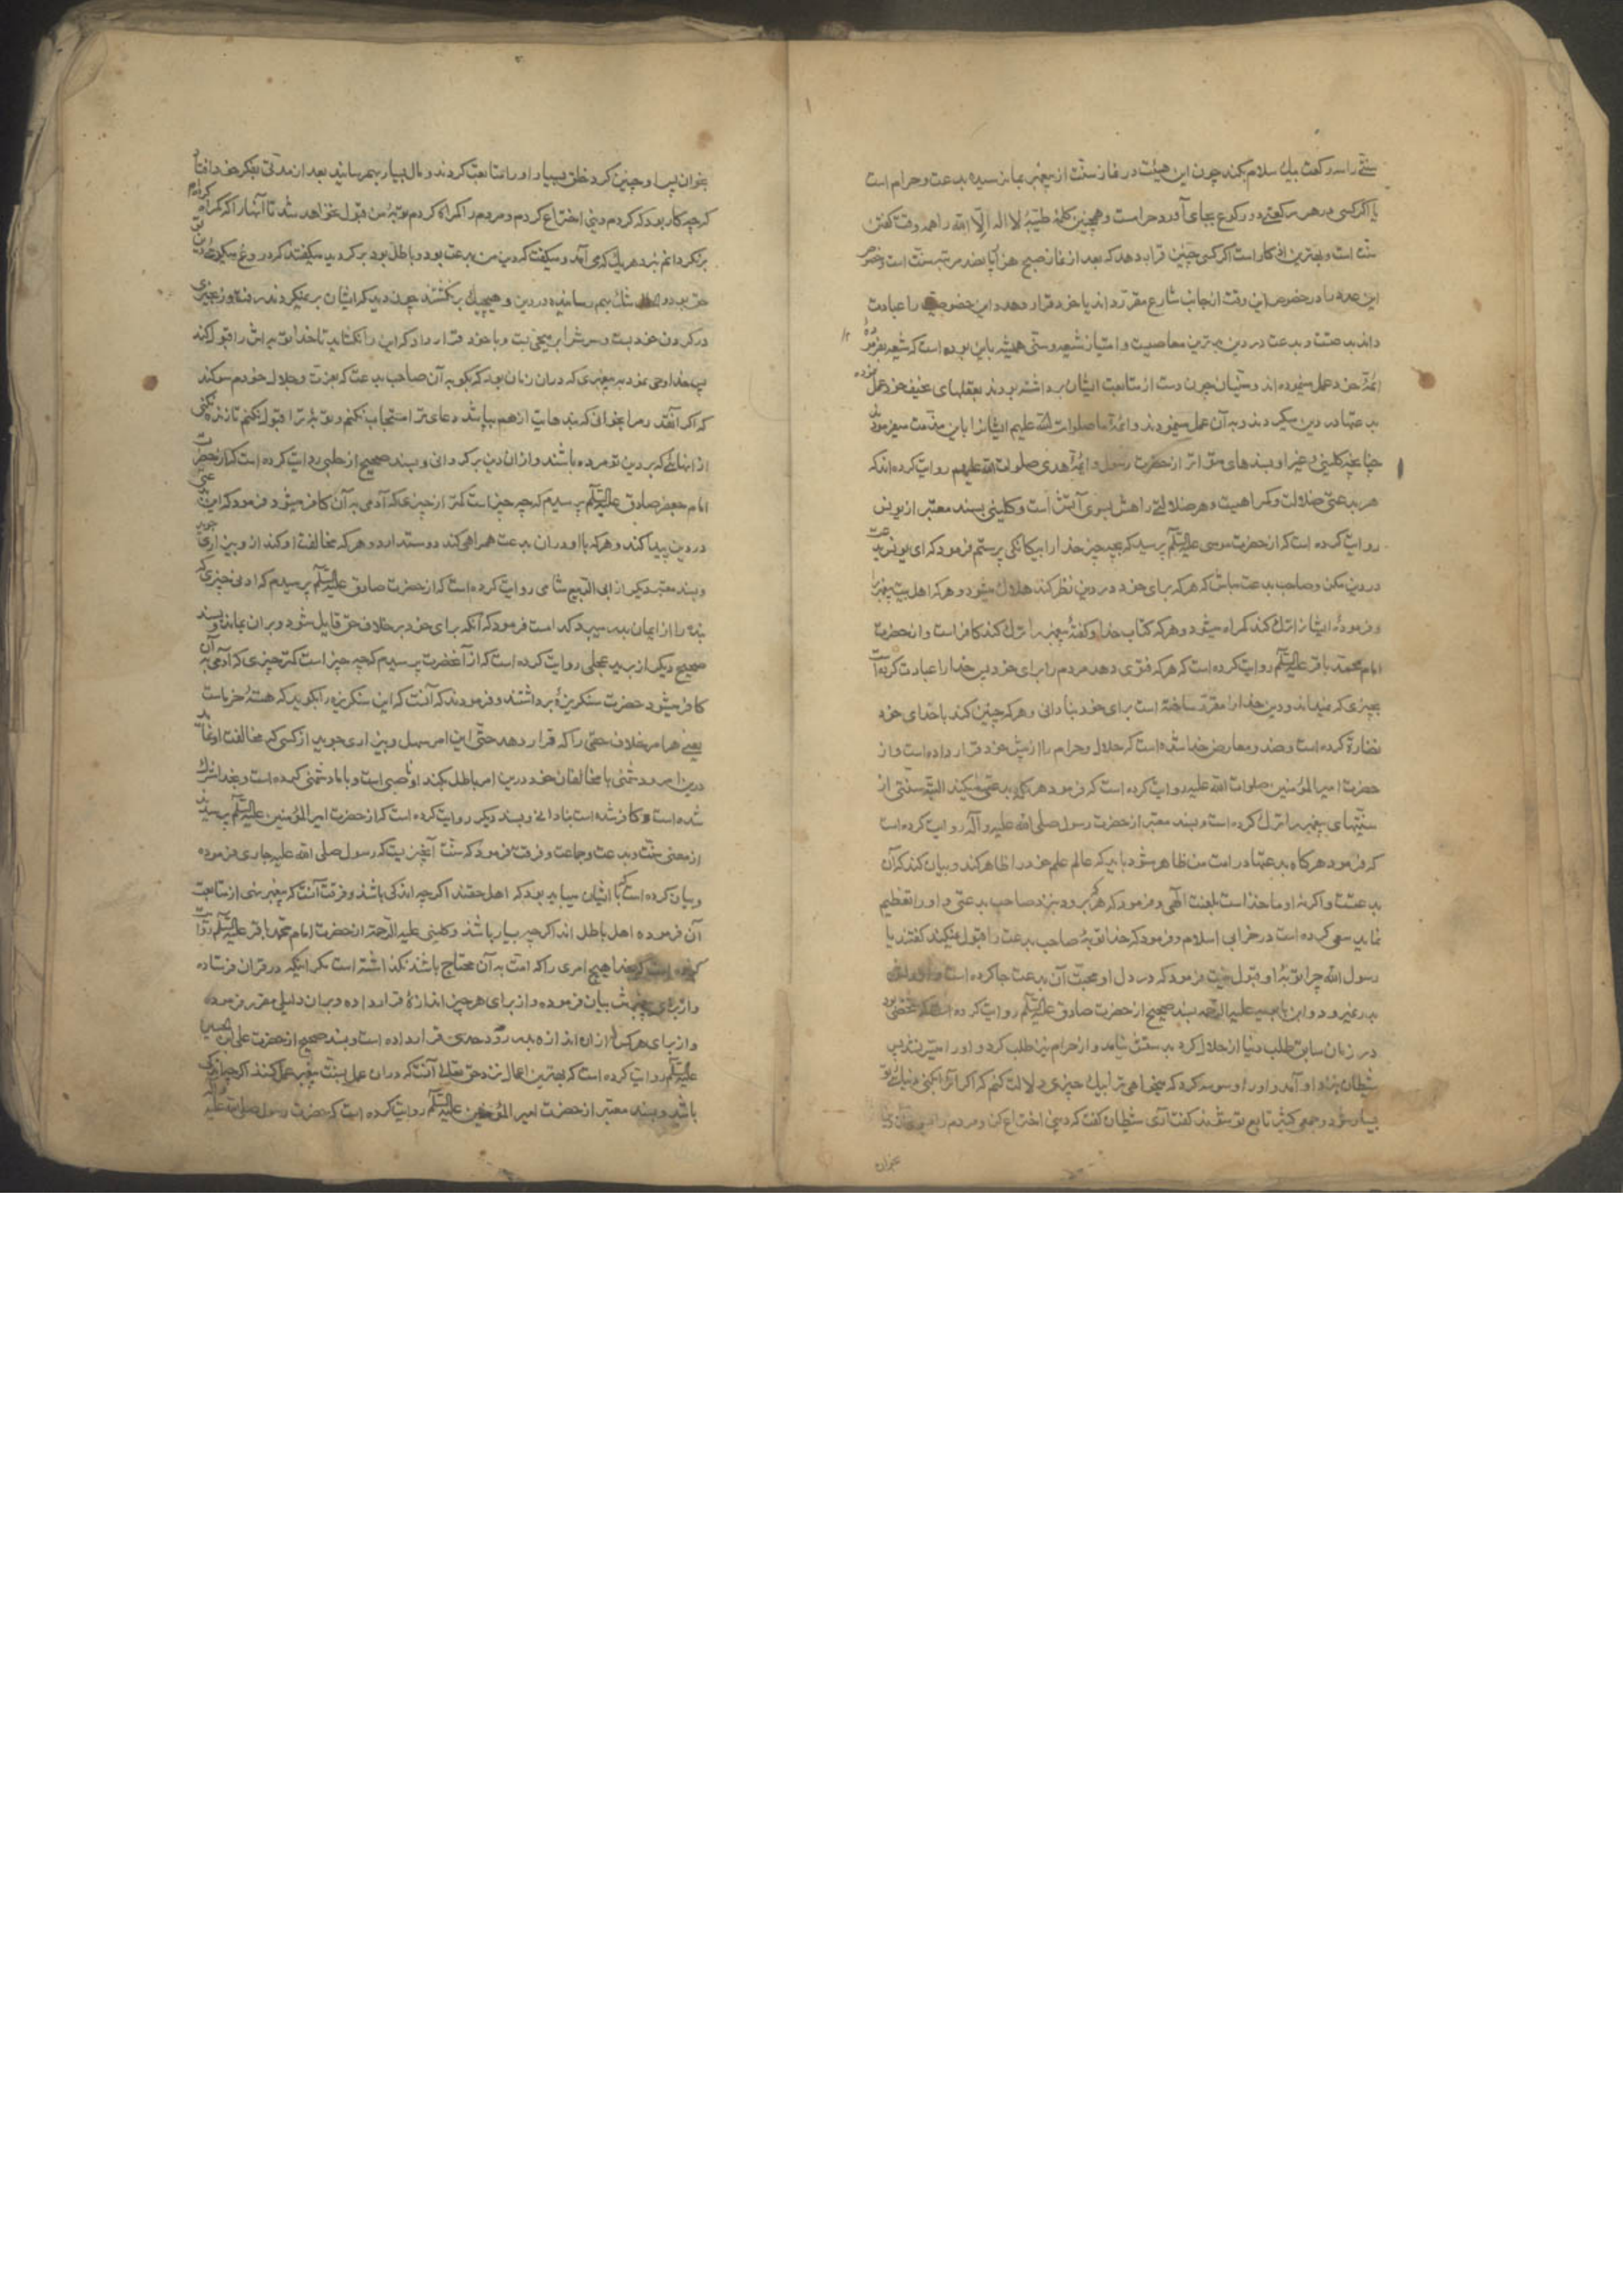 سنتی را سه رکعت بیک سلام بکند چون این هیئت در نماز سنت از پیغمبر بما نرسیده بدعت و حرام است
یا اگر کسی در هر رکعتی دو رکوع بجای آورد حرام است و همچنین کلمهٔ طیبهٔ لا اله الّا الله را همه وقت گفتن
سنت است و بهترین اذکار است اگر کسی چنین قرار دهد که بعد از نماز صبح هزار و پانصد مرتبه سنت است و خصوص
این عدد را در خصوص این وقت از جانب شارع مقرر داند یا خود قرار دهد و این خصوصیت را عبادت
داند بدعتست و بدعت در دین بدترین معاصیست و امتیاز شیعه و سنی همیشه باین بوده است که شیعه بفرمودهٔ
ائمهٔ خود عمل مینموده‌اند و سنیان چون دست از متابعت ایشان برداشته بودند بعقلهای ضعیف خود عمل نموده
بدعتها در دین میکردند و به آن عمل مینمودند و ائمهٔ ما صلوات الله علیهم ایشان را باین مذمت میفرمودند
چنانچه کلینی و غیر او بسندهای متواتر از حضرت رسول و ائمهٔ هدی صلوات الله علیهم روایت کرده‌اند که
هر بدعتی ضلالت و گمراهیست و هر ضلالتی راهش بسوی آتش است و کلینی بسند معتبر از یونس
روایت کرده است که از حضرت موسی علیه السلام پرسید که بچه چیز خدا را بیگانگی پرستم فرمود که ای یونس بدعت
در دین مکن و صاحب بدعت مباش که هر که برای خود در دین نظر کند هلاک میشود و هر که اهل بیت پیغمبر را
و فرمودهٔ ایشان را ترک کند گمراه میشود و هر که کتاب خدا و گفتهٔ پیغمبر را ترک کند کافر است و از حضرت
امام محمد باقر علیه السلام روایت کرده است که هر که فتوی دهد مردم را برای خود پس خدا را عبادت کرده است
بچیزی که نمیداند و دین خدا را مقرر ساخته است برای خود بنادانی و هر که چنین کند با خدای خود
مضادة کرده است و ضد و معارض خدا شده است که حلال و حرام را از پیش خود قرار داده است و از
حضرت امیر المؤمنین صلوات الله علیه روایت کرده است که فرمود هر که بدعتی میکند البته سنتی از
سنتهای پیغمبر را ترک کرده است و بسند معتبر از حضرت رسول صلی الله علیه و آله روایت کرده است
که فرمود هرگاه بدعتها در امت من ظاهر شود باید که عالم علم خود را ظاهر کند و بیان کند که آن
بدعتست و اگر نه او ماخذ است بلعنت الهی و فرمود که هر که برود بنزد صاحب بدعتی و او را تعظیم
نماید سعی کرده است در خرابی اسلام و فرمود که خدا توبهٔ صاحب بدعت را قبول نمیکند گفتند یا
رسول الله چرا توبهٔ او قبول نیست فرمود که در دل او محبت آن بدعت جا کرده است و از دلش
بدر نمیرود و ابن بابویه علیه الرحمه بسند صحیح از حضرت صادق علیه السلام روایت کرده است که شخصی بود
در زمان سابق طلب دنیا از حلال کرد بدستش نیامد و از حرام نیز طلب کرد و او را میسر نشد پس
شیطان بنزد او آمد و او را وسوسه کرد که میخواهی ترا بیک چیزی دلالت کنم که اگر آنرا بکنی دنیای تو
بسیار شود و جمعی کثیر تابع تو شوند گفت آری شیطان گفت که دینی اختراع کن و مردم را بسوی آن دین
بخوان
بخوان پس او چنین کرد خلق بسیار او را متابعت کردند و مال بسیار بهم رسانید بعد از مدتی بفکر خود افتاد
که چه کار بود که کردم دینی اختراع کردم و مردم را گمراه کردم توبهٔ من قبول نخواهد شد تا آنها را که گمراه کرده‌ام
برنگردانم بنزد هر یک که می‌آمد و میگفت که دین من بدعت بود و باطل بود برگردید میگفتند که دروغ میگویی دین تو
حق بود و شک بهم رسانیده در دین و هیچیک برنگشتند چون دید که ایشان برنمیگردند رفت و زنجیری
در گردن خود بست و سرش را بر میخی بست و با خود قرار داد که این را نگشاید تا خدا توبه‌اش را قبول کند
پس خدا وحی نمود به پیغمبری که در آن زمان بود که بگو به آن صاحب بدعت که بعزت و جلال خودم سوگند
که اگر آنقدر مرا بخوانی که بندهایت از هم بپاشد دعای ترا مستجاب نکنم و توبهٔ ترا قبول نکنم تا زنده نکنی
از آنهائی که بر دین تو مرده باشند و از آن دین برگردانی و بسند صحیح از حلبی روایت کرده است که از حضرت
امام جعفر صادق علیه السلام پرسیدم که چه چیز است کمتر از چیزی که آدمی به آن کافر میشود فرمود که این بدعتی
در دین پیدا کند و هر که با او در آن بدعت همراهی کند دوست دارد و هر که مخالفت او کند از و بیزاری جوید
و بسند معتبر دیگر از ابی الربیع شامی روایت کرده است که از حضرت صادق علیه السلام پرسیدم که ادنی چیزی که
بنده را از ایمان بدر میبرد کدام است فرمود که آنکه برای خود بر خلاف حق قایل شود و بر آن بماند و بسند
صحیح دیگر از برید عجلی روایت کرده است که از آنحضرت پرسیدم که چه چیز است کمتر چیزی که آدمی به آن
کافر میشود حضرت سنگریزهٔ برداشتند و فرمودند که آنست که این سنگریزه را بگوید که هستهٔ خرماست
یعنی هر امر خلاف حقی را که قرار دهد حتی این امر سهل و بیزاری جوید از کسی که مخالفت او نماید
درین امر و دشمنی با مخالفان خود درین امر باطل بکند او ناصبی است و با ما دشمنی کرده است و بخدا شرک
شده است و کافر شده است بنادانی و بسند دیگر روایت کرده است که از حضرت امیر المؤمنین علیه السلام پرسیدند
از معنی سنت و بدعت و جماعت و فرقت فرمود که سنت آنچیزیست که رسول صلی الله علیه جاری فرموده
و بیان کرده است با ایشان میباید بود که اهل حقند اگر چه اندکی باشند و فرقت آنست که پیغمبر نهی از متابعت
آن فرموده اهل باطل‌اند اگر چه بسیار باشند و کلینی علیه الرحمة از حضرت امام محمد باقر علیه السلام روایت
کرده است که خدا هیچ امری را که امت به آن محتاج باشند نگذاشته است مگر اینکه در قرآن فرستاده
و از برای پیغمبرش بیان فرموده و از برای هر چیز اندازهٔ قرار داده و بر آن دلیلی مقرر فرموده
و از برای هر کس از آن اندازه بدر رود حدی قرار داده است و بسند صحیح از حضرت علی بن الحسین
علیه السلام روایت کرده است که بهترین اعمال نزد حق تعالی آنست که در آن عمل بسنت پیغمبر عمل کنند اگر چه اندکی
باشد و بسند معتبر از حضرت امیر المؤمنین علیه السلام روایت کرده است که حضرت رسول صلی الله علیه و آله